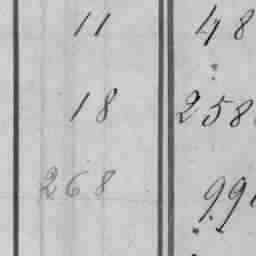 11 48
18 258
268 99